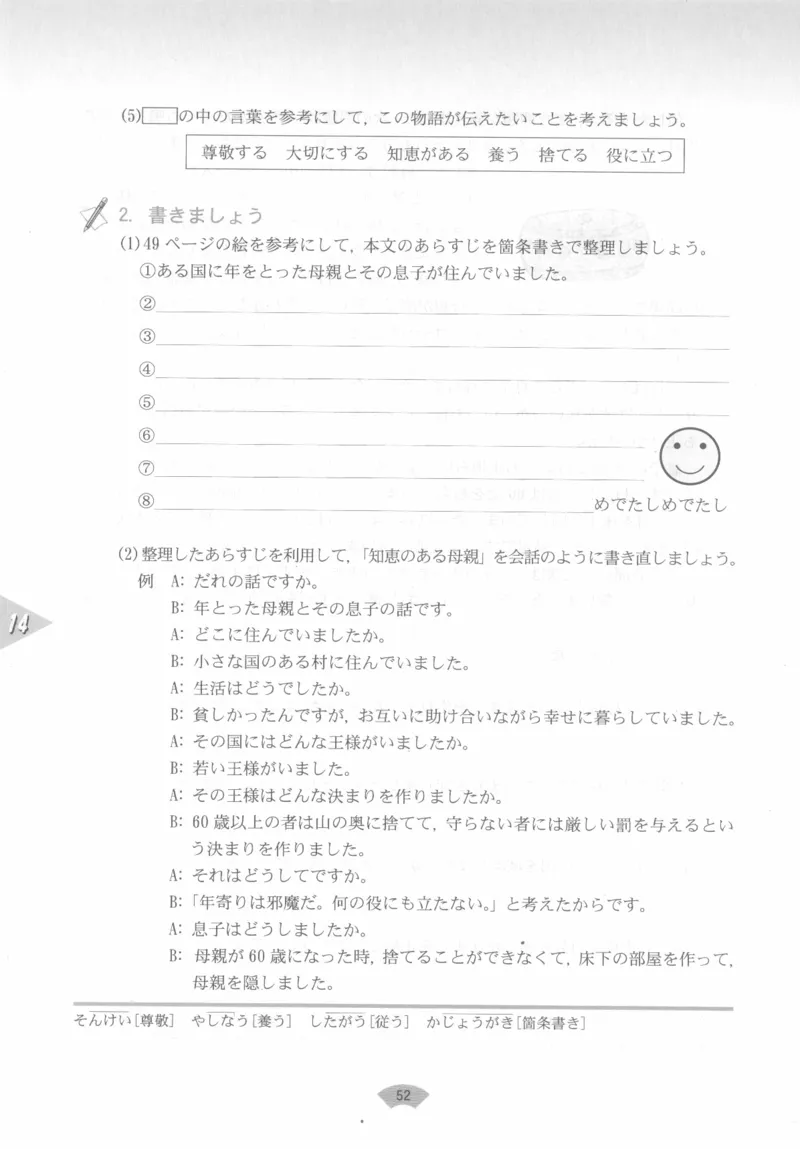 (5)□の中の言葉を参考にして，この物語が伝えたいことを考えましょう。
尊敬する　大切にする　知恵がある　養う　捨てる　役に立つ
2. 書きましょう
(1)49 ページの絵を参考にして，本文のあらすじを箇条書きで整理しましょう。
①ある国に年をとった母親とその息子が住んでいました。
②
③
④
⑤
⑥
⑦
⑧　めでたしめでたし
(2)整理したあらすじを利用して，「知恵のある母親」を会話のように書き直しましょう。
例　A: だれの話ですか。
B: 年とった母親とその息子の話です。
A: どこに住んでいましたか。
B: 小さな国のある村に住んでいました。
14
A: 生活はどうでしたか。
B: 貧しかったんですが，お互いに助け合いながら幸せに暮らしていました。
A: その国にはどんな王様がいましたか。
B: 若い王様がいました。
A: その王様はどんな決まりを作りましたか。
B: 60 歳以上の者は山の奥に捨てて，守らない者には厳しい罰を与えるとい
う決まりを作りました。
A: それはどうしてですか。
B:「年寄りは邪魔だ。何の役にも立たない。」と考えたからです。
A: 息子はどうしましたか。
B: 母親が 60 歳になった時，捨てることができなくて，床下の部屋を作って，
母親を隠しました。
そんけい[尊敬]　やしなう[養う]　したがう[従う]　かじょうがき[箇条書き]
52